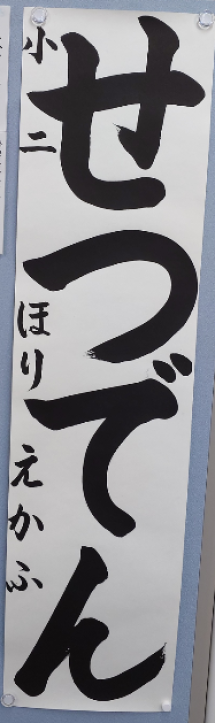 せつでん
小二 ほり えかふ